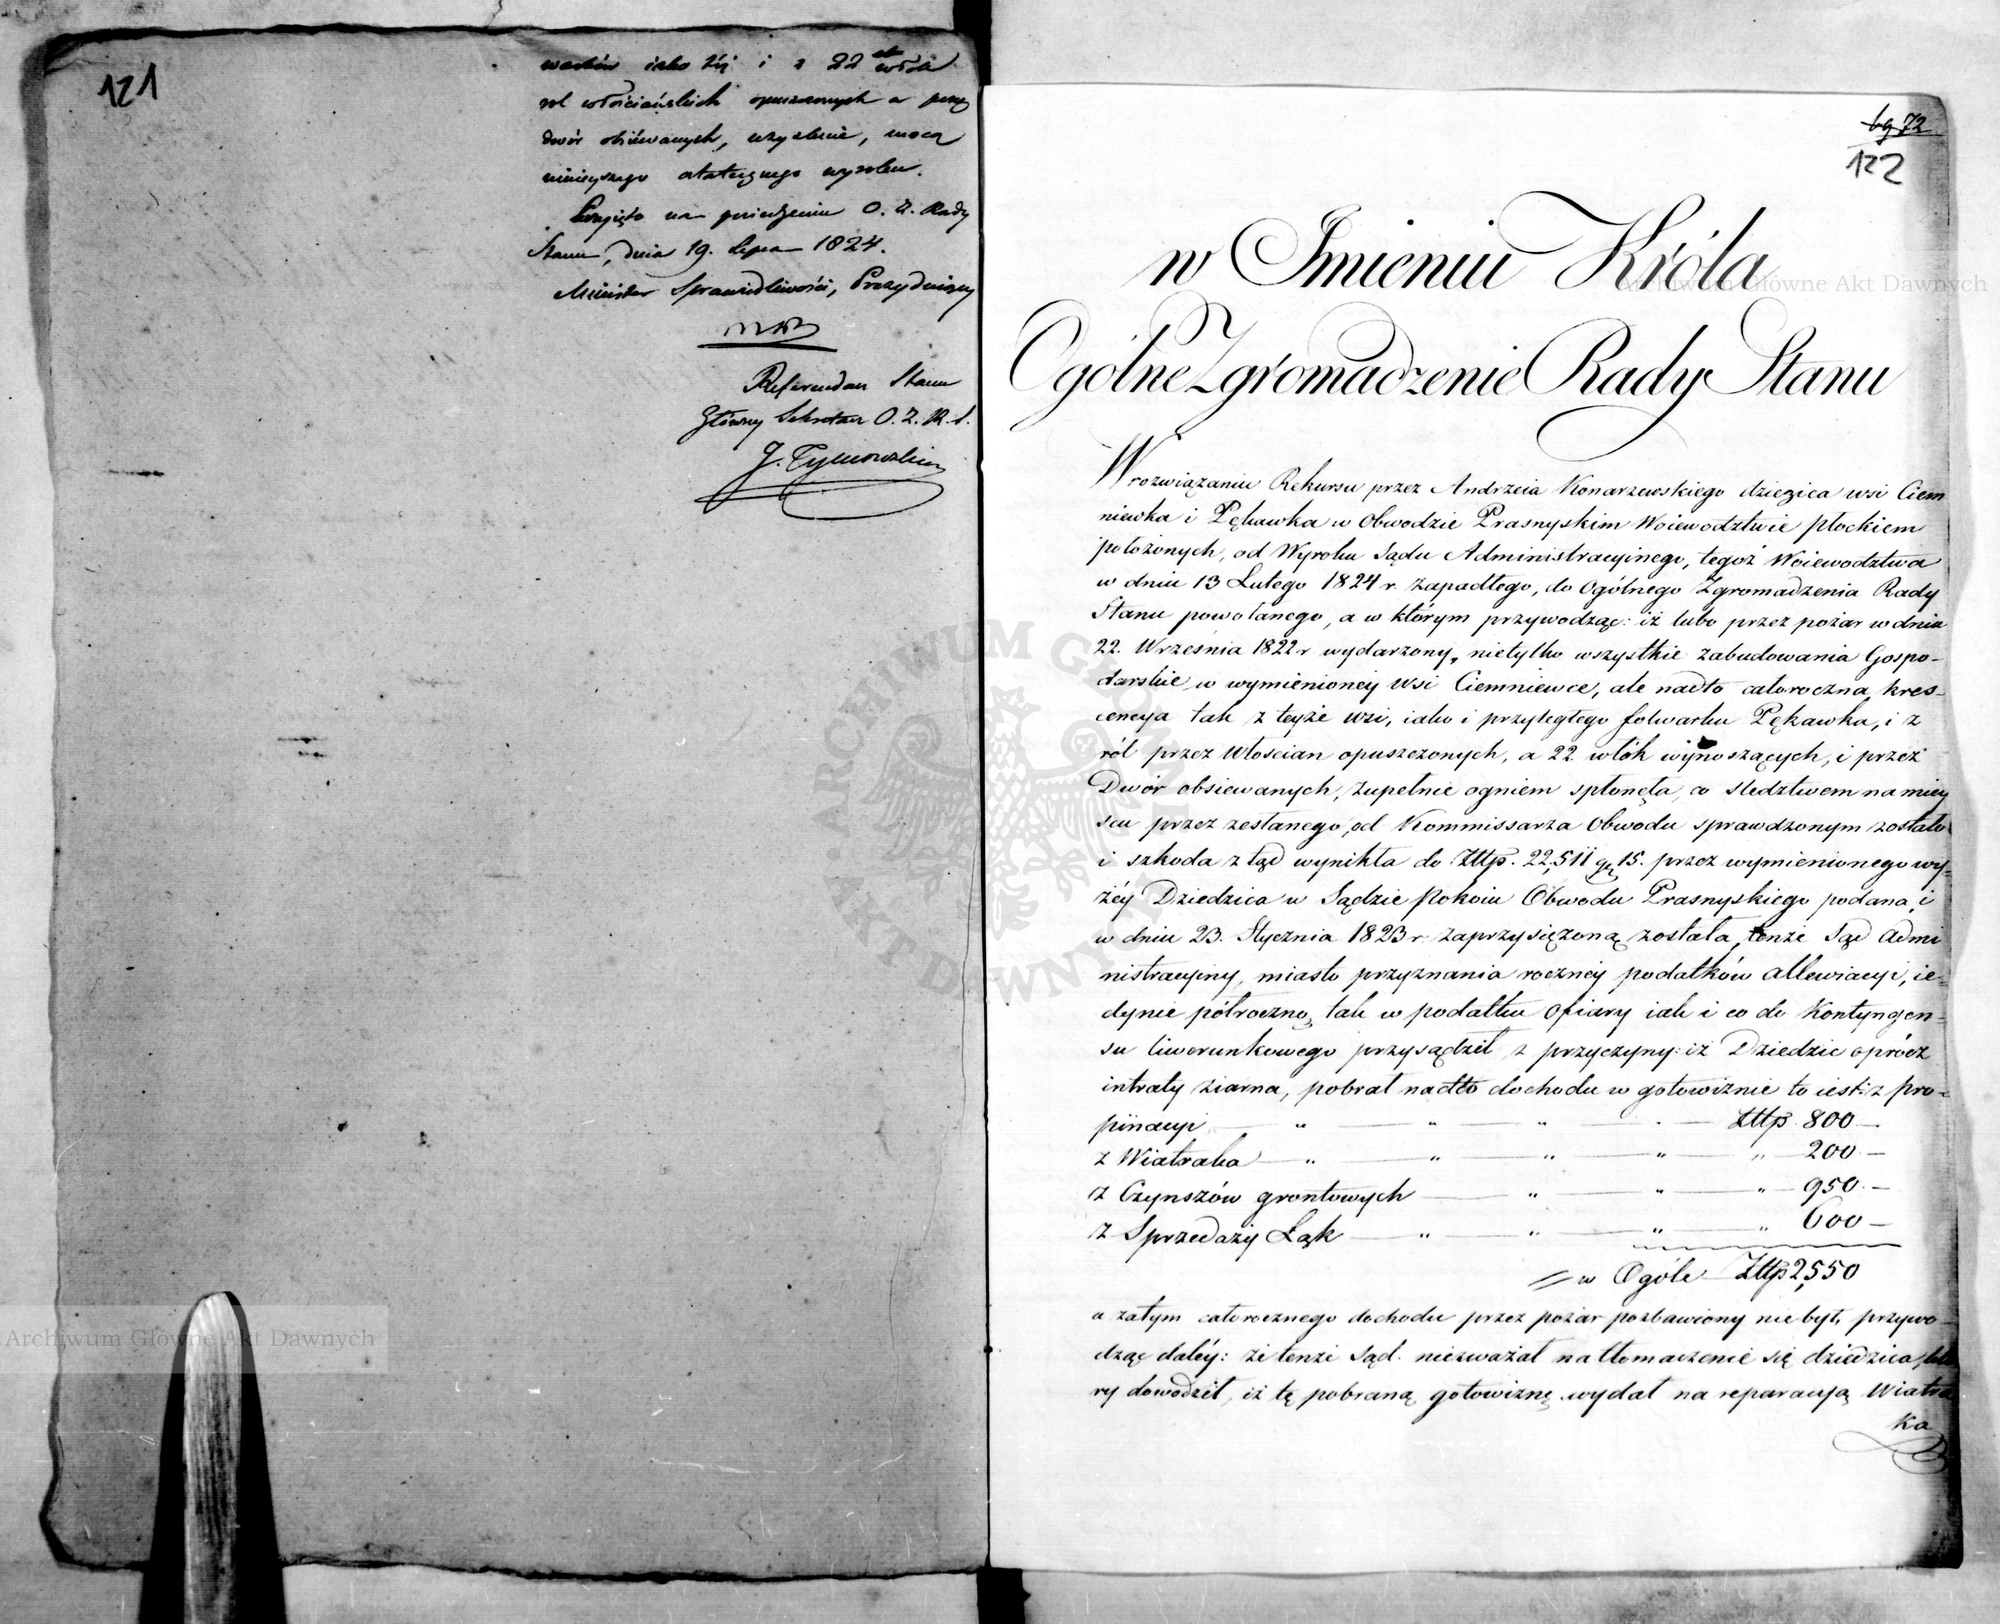 121
warków iako też i z 22ch włók
ról włościańskich opuszczonych a przez
dwór obsiewanych, uzyskuie, mocą
ninieyszego ostatecznego wyroku.
Przyięto na posiedzeniu O. Z. Rady
Stanu, dnia 19. Lipca 1824.
Minister Sprawiedliwości, Prezyduiący
Referendarz Stanu
Główny Sekretarz O. Z. R. S.
J. Tymowski
72
122
w Imieniu Króla
Ogólne Zgromadzenie Rady Stanu
W rozwiązaniu Rekursu przez Andrzeia Konarzewskiego dziedzica wsi Ciem
niewka i Pękawka w Obwodzie Prasnyskim Woiewodztwie płockiem
położonych, od Wyroku Sądu Administracyinego, tegoż Woiewodztwa
w dniu 13 Lutego 1824 r. zapadłego, do Ogólnego Zgromadzenia Rady
Stanu powołanego, a w którym przywodząc: iż lubo przez pożar w dniu
22. Września 1822 r wydarzony, nietylko wszystkie zabudowania Gospo-
darskie w wymienioney wsi Ciemniewce, ale nadto całoroczna kres-
cencya tak z teyże wsi, iako i przyległego folwarku Pękawka, i z
ról przez Włoscian opuszczonych, a 22. włók wynoszących, i przez
Dwór obsiewanych, zupełnie ogniem spłonęła, co sledztwem na miey
scu przez zesłanego, od Kommissarza Obwodu sprawdzonym zostało
i szkoda z tąd wynikła do Złłp. 22,511 gr 15. przez wymienionego wy-
żéy Dziedzica w Sądzie Pokoiu Obwodu Prasnyskiego podana, i
w dniu 23. Stycznia 1823 r. zaprzysiężoną została, tenże Sąd Admi
nistracyiny, miasto przyznania roczney podatków allewiacyi, ie-
dynie półroczną, tak w podatku Ofiary iak i co do Kontyngen-
su liwerunkowego przysądził z przyczyny: iż Dziedzic oprócz
intraty ziarna, pobrał nadto dochodu w gotowiznie to iest: z pro-
pinacyi — „ — „ — „ — Złłp. 800 —
z Wiatraka — „ — „ — „ — „ — „ — 200 —
z Czynszów grontowych — „ — „ — „ — 950 —
z Sprzedaży Łąk — „ — „ — „ — „ 600 —
w Ogóle Złłp 2,550
a zatym całorocznego dochodu przez pożar pozbawiony nie był, przywo-
dząc daléy: że tenże Sąd nie zważał na tłomaczenie się dziedzica, któ
ry dowodził, iż tę pobraną gotowiznę wydał na reparacyią Wiatra
ka
Archiwum Główne Akt Dawnych
Archiwum Główne Akt Dawnych
ARCHIWUM GŁÓWNE AKT DAWNYCH